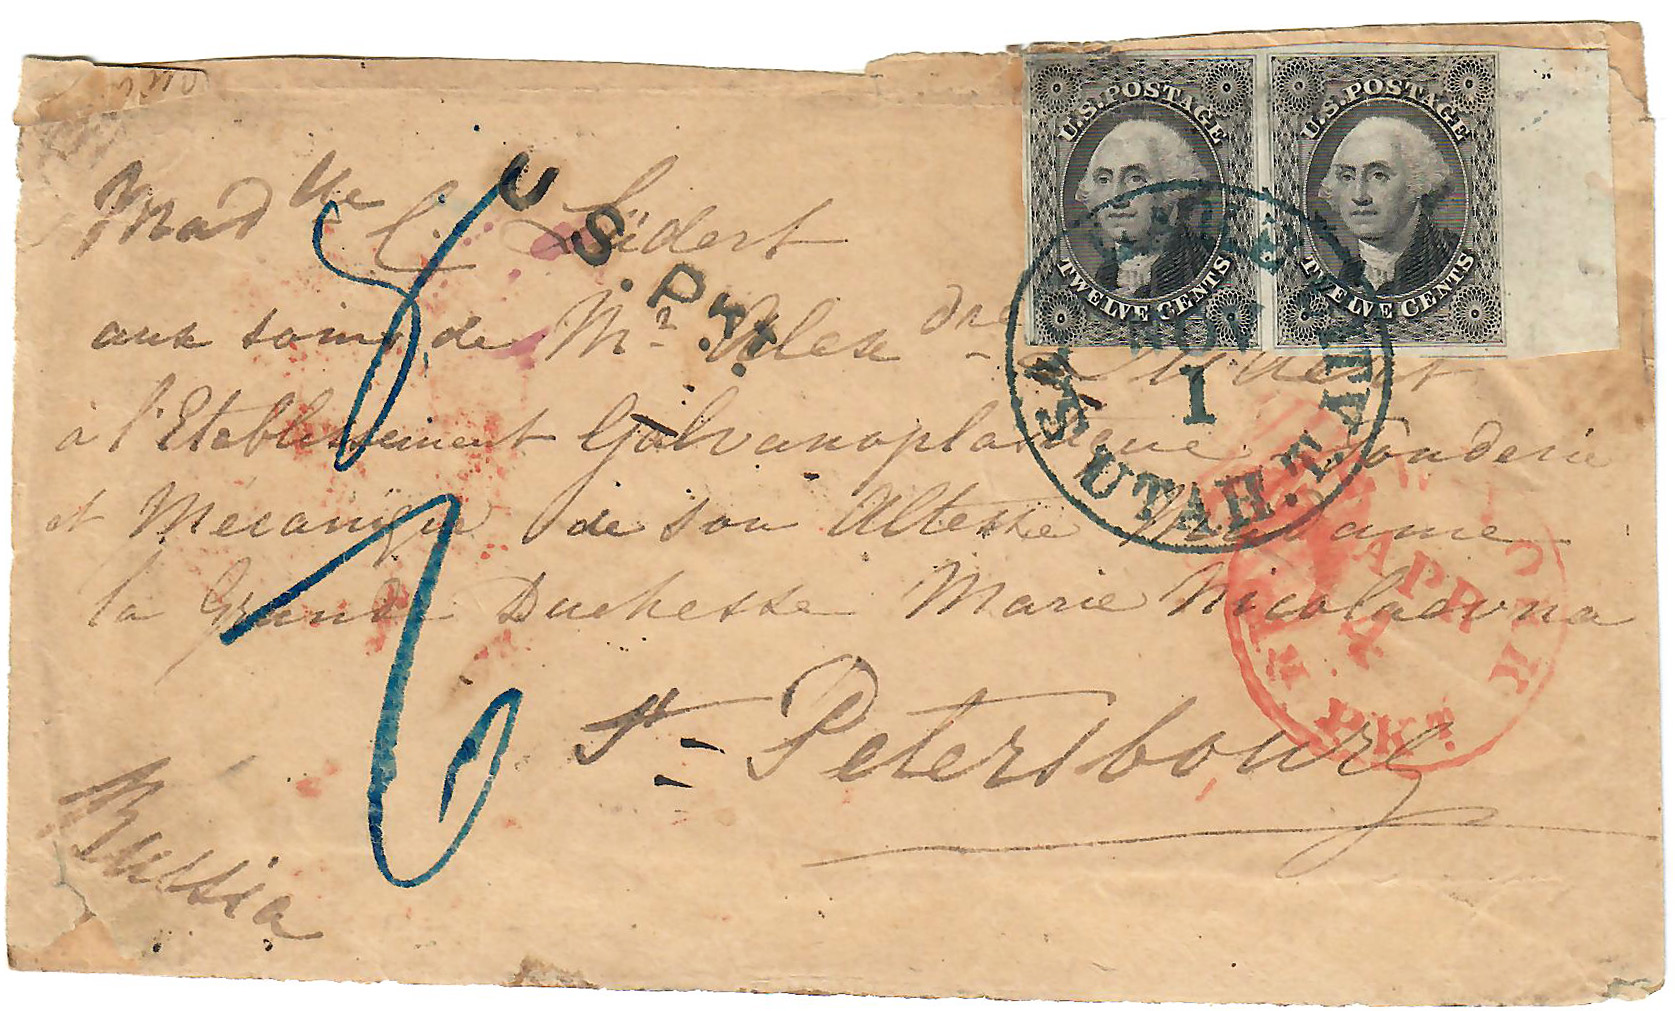 U.S. POSTAGE
TWELVE CENTS
U.S. POSTAGE
TWELVE CENTS
SALT LAKE
NOV
1
UTAH.T.
U.S.Pkt.
Madlle C. Lüdert
aux soins de Mr Alexdre
à l'Etablissement Galvanoplastique Fonderie
et Mécanique de son Altesse Madame
la Grande Duchesse Marie Nicolaevna
St= Petersbourg
Russia
APR
PKT.